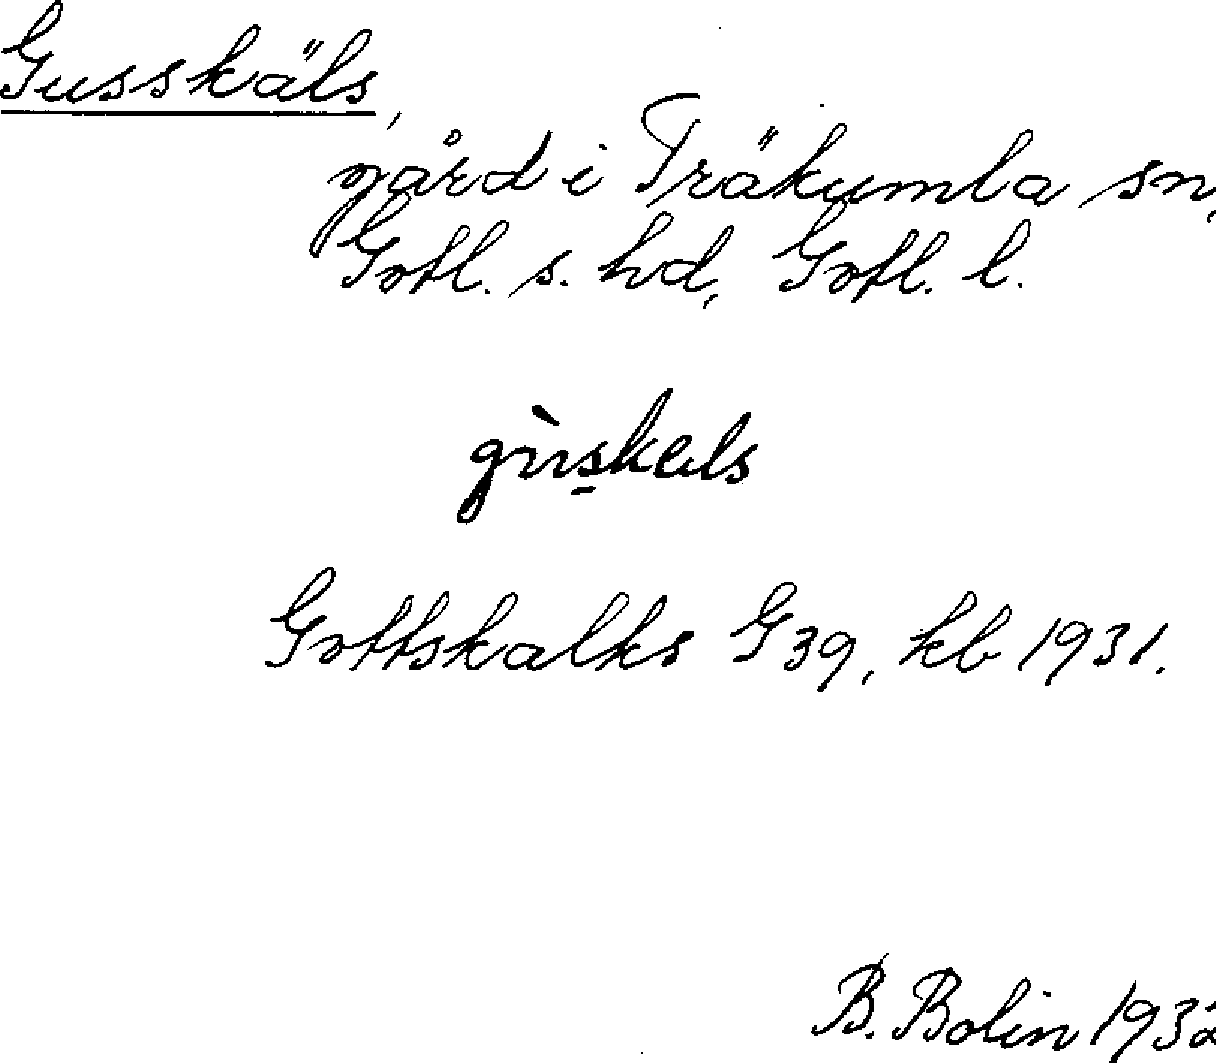 Gusskäls,
gård i Träkumla sn,
Gotl. s. hd, Gotl. l.
gùs̱kæls
Gottskalks G 39, kb 1931.
B. Bolin 1932